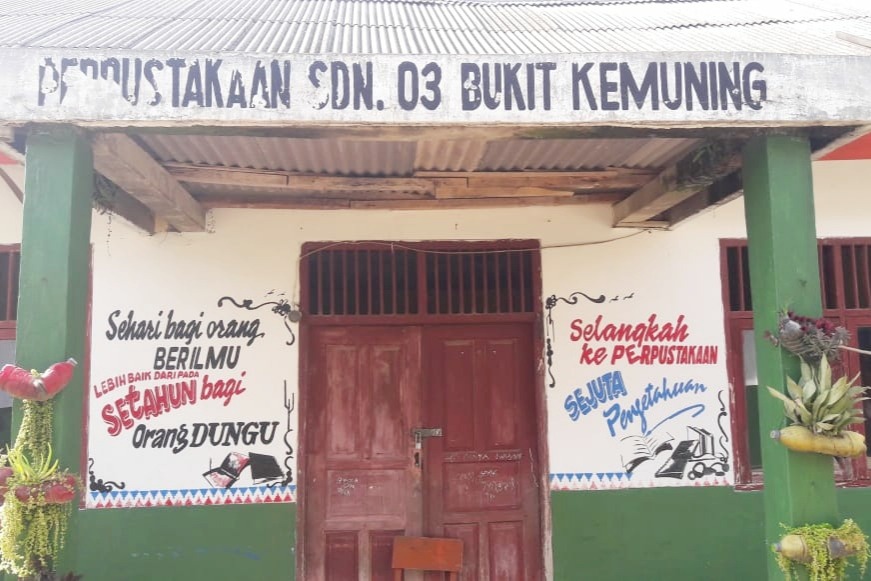 PERPUSTAKAAN SDN. 03 BUKIT KEMUNING
Sehari bagi orang
BERILMU
LEBIH BAIK DARI PADA
SETAHUN bagi
Orang DUNGU
Selangkah
ke PERPUSTAKAAN
SEJUTA
Pengetahuan